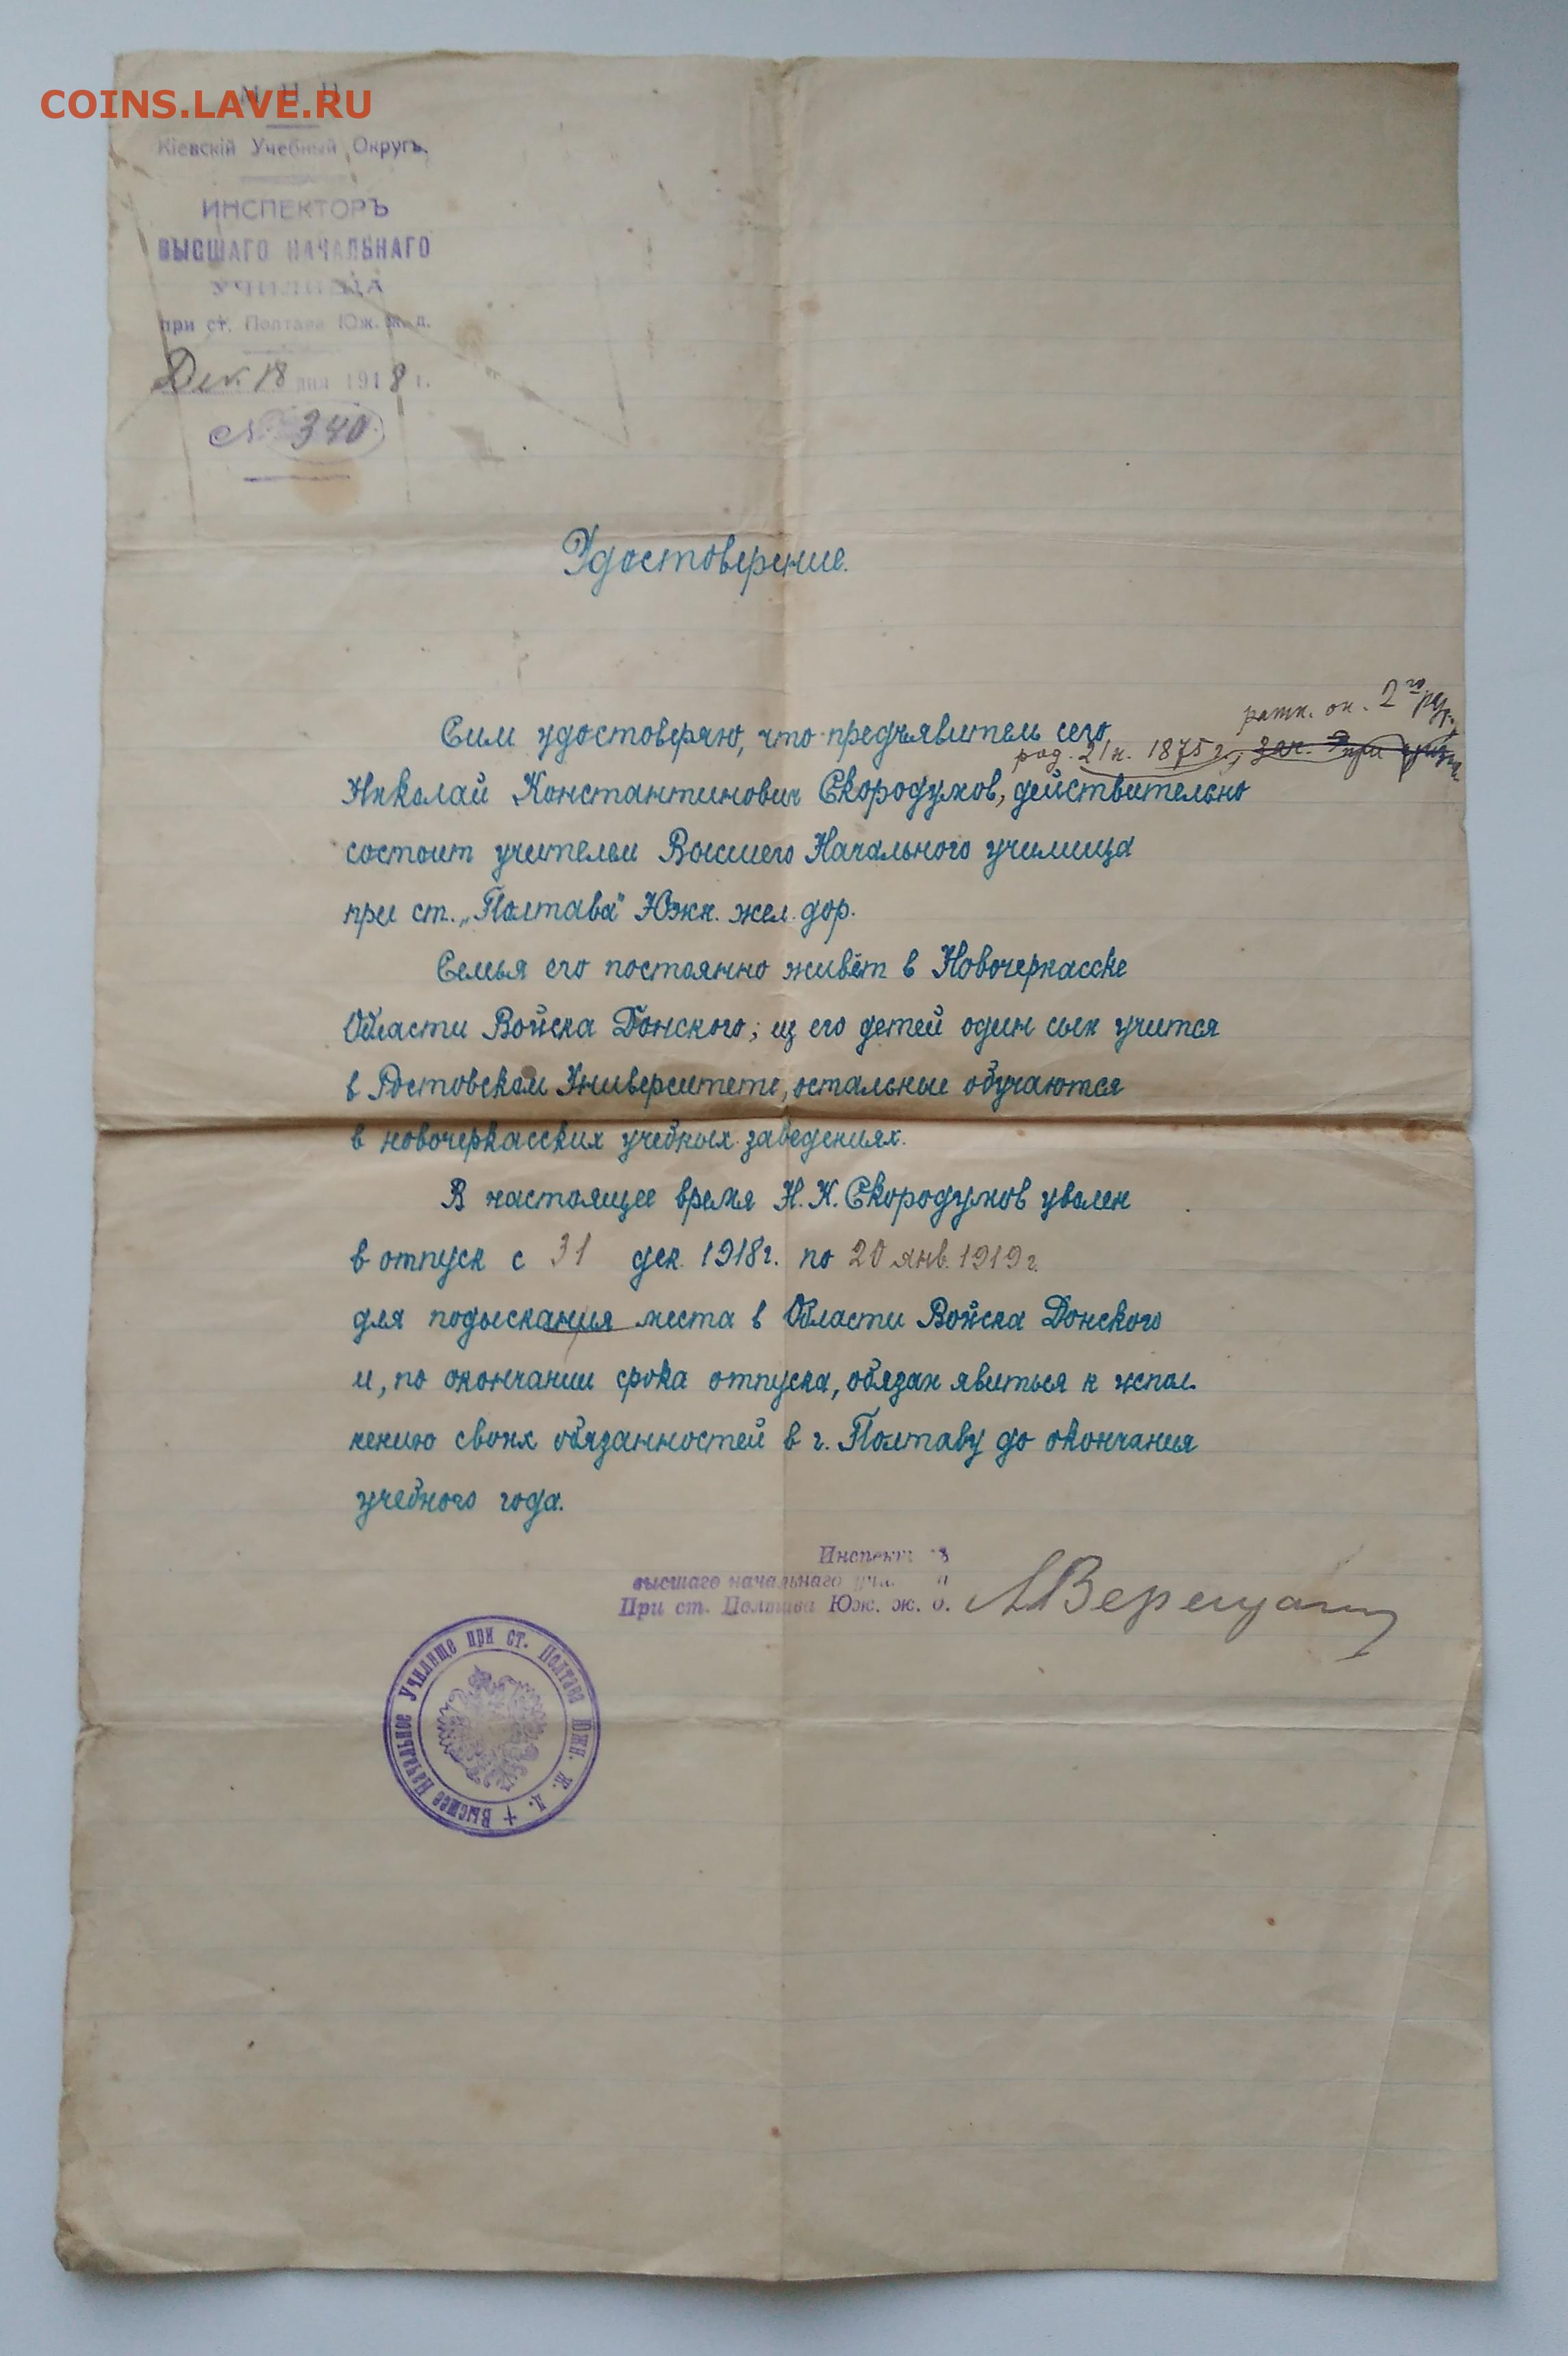 COINS.LAVE.RU
М. Н. П.
Кіевскій Учебный Округъ.
ИНСПЕКТОРЪ
ВЫСШАГО НАЧАЛЬНАГО
УЧИЛИЩА
при ст. Полтава Юж. ж. д.
Дек. 18 дня 1918 г.
№ 340
Удостоверение.
ратн. оп. 2го разр.
Сим удостоверяю, что предъявитель сего,
род. 21 н. 1875 г.,
Николай Константинович Скородумов, действительно
состоит учителем Высшего Начального училища
при ст. „Полтава" Южн. жел. дор.
Семья его постоянно живёт в Новочеркасске
Области Войска Донского; из его детей один сын учится
в Ростовском Университете, остальные обучаются
в новочеркасских учебных заведениях.
В настоящее время Н. К. Скородумов уволен
в отпуск с 31 дек. 1918 г. по 20 янв. 1919 г.
для подыскания места в Области Войска Донского
и, по окончании срока отпуска, обязан явиться к испол-
нению своих обязанностей в г. Полтаву до окончания
учебного года.
Инспекторъ
высшаго начальнаго училища
При ст. Полтава Юж. ж. д.
Высшее Начальное Училище при ст. Полтава Южн. ж. д.